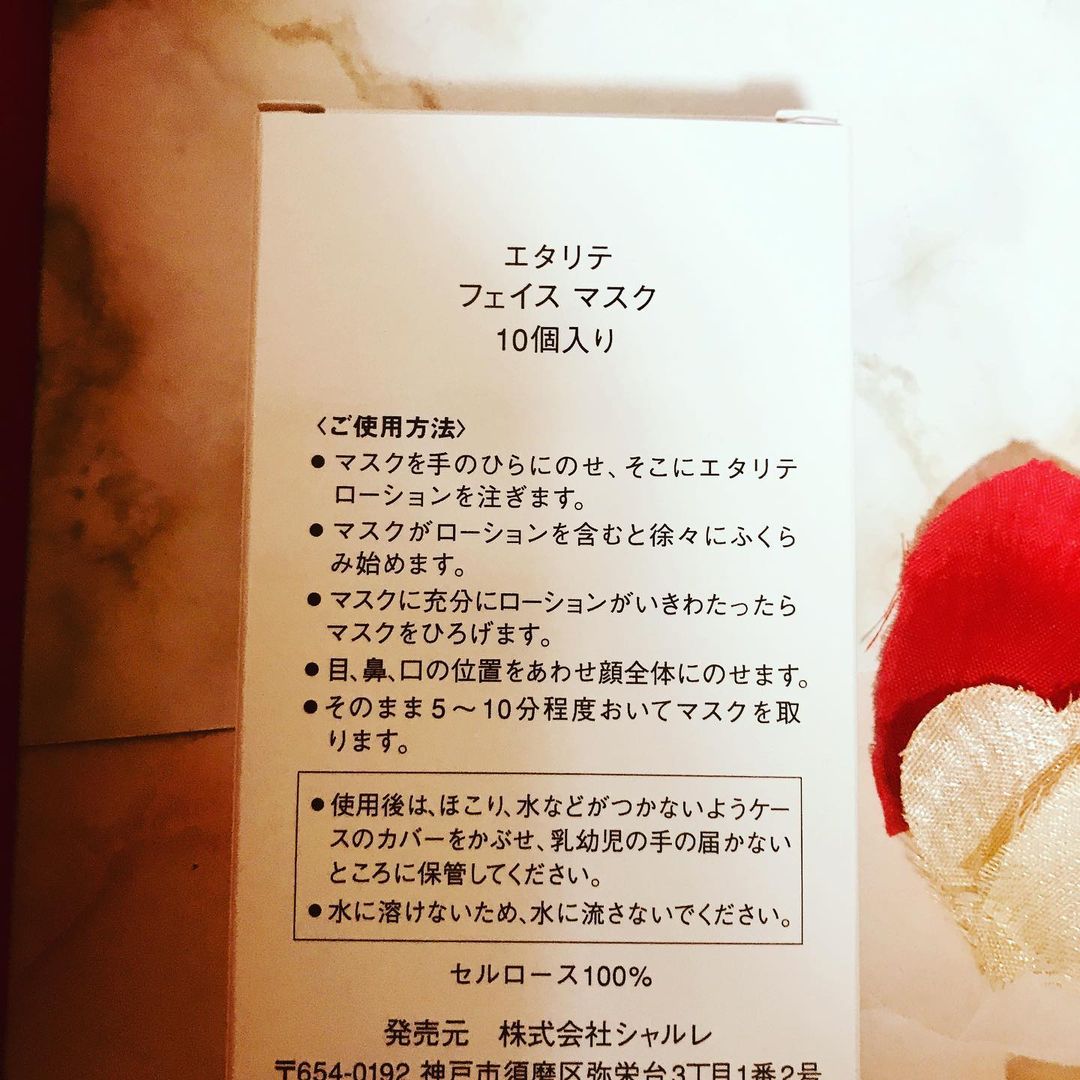 エタリテ
フェイス マスク
10個入り
〈ご使用方法〉
●マスクを手のひらにのせ、そこにエタリテ
ローションを注ぎます。
●マスクがローションを含むと徐々にふくら
み始めます。
●マスクに充分にローションがいきわたったら
マスクをひろげます。
●目、鼻、口の位置をあわせ顔全体にのせます。
●そのまま5〜10分程度おいてマスクを取
ります。
●使用後は、ほこり、水などがつかないようケー
スのカバーをかぶせ、乳幼児の手の届かない
ところに保管してください。
●水に溶けないため、水に流さないでください。
セルロース100%
発売元　株式会社シャルレ
〒654-0192 神戸市須磨区弥栄台3丁目1番2号